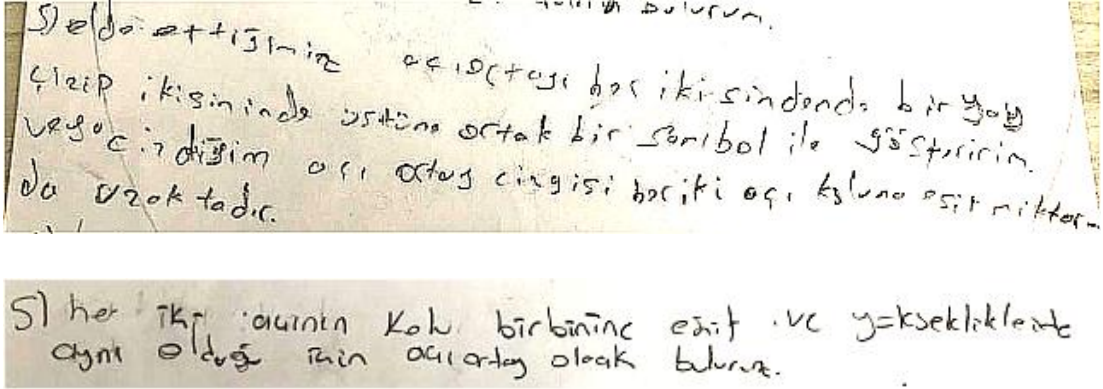 bulurum.
5) elde ettiğimiz açıortayı her ikisindende bir yay
çizip ikisininde üstüne ortak bir sembol ile gösteririm.
veya çizdiğim açı ortay çizgisi her iki açı koluna eşit miktar-
da uzaktadır.
5) her iki açının kolu birbirine eşit ve yükseklikleride
aynı olduğu için açıortay olarak buluruz.